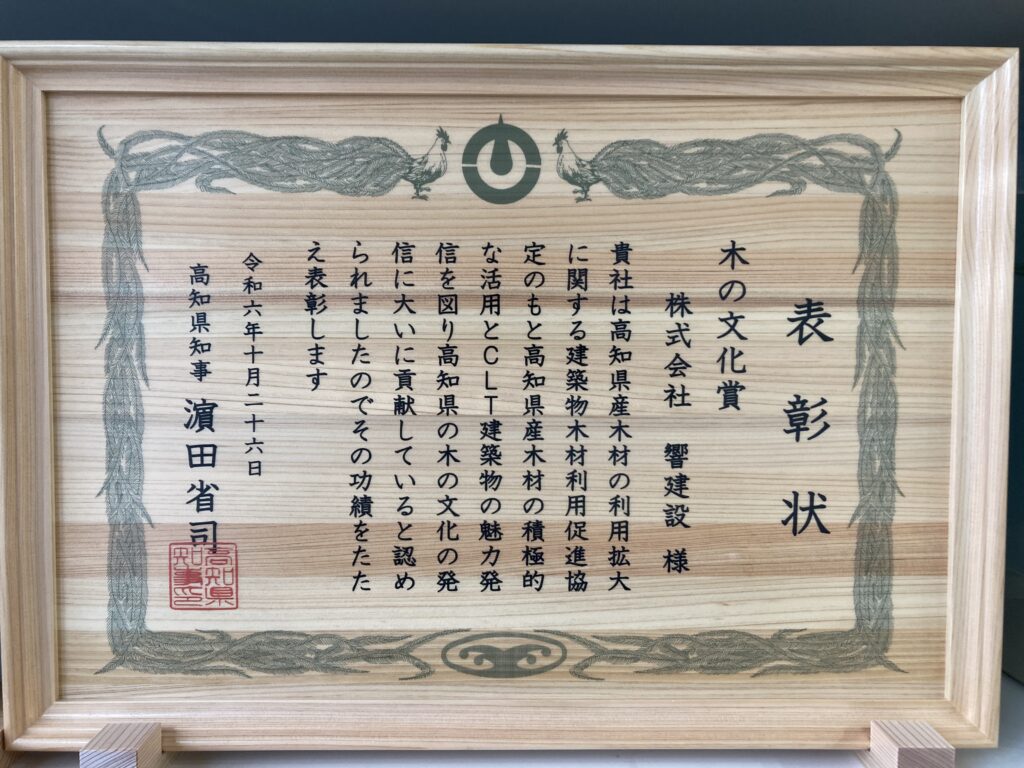 表彰状
木の文化賞
株式会社 響建設 様
貴社は高知県産木材の利用拡大
に関する建築物木材利用促進協
定のもと高知県産木材の積極的
な活用とCLT建築物の魅力発
信を図り高知県の木の文化の発
信に大いに貢献していると認め
られましたのでその功績をたた
え表彰します
令和六年十月二十六日
高知県知事 濵田省司
高知県
知事印